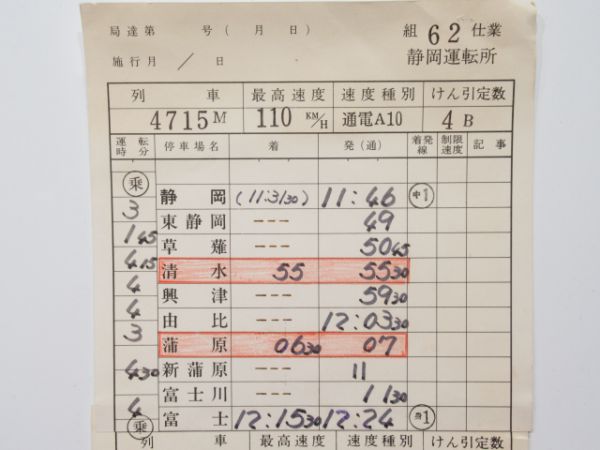 局達第 号( 月 日) 組 62 仕業
施行月 / 日 静岡運転所
列 車 最高速度 速度種別 けん引定数
4715M 110 KM/H 通電A10 4B
運転時分 停車場名 着 発(通) 着発線 制限速度 記事
乗
静岡 (11:3/30) 11:46 中1
3
東静岡 --- 49
1 45
草薙 --- 50 45
4 15
清水 55 55 30
4
興津 --- 59 30
4
由比 --- 12:03 30
3
蒲原 06 30 07
新蒲原 --- 11
4 30
富士川 --- 11 30
4
富士 12:15 30 12:24
乗
列 車 最高速度 速度種別 けん引定数